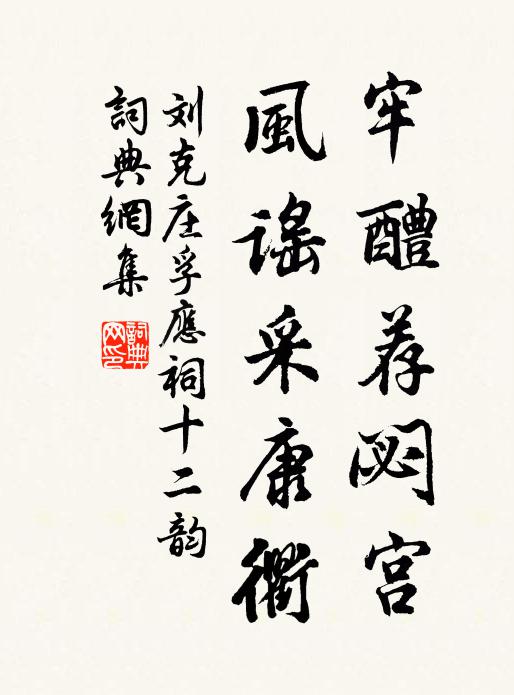 牢醴荐閟宫
風謠采康衢
刘克庄孚應祠十二韵
詞典網集
詞典
网印